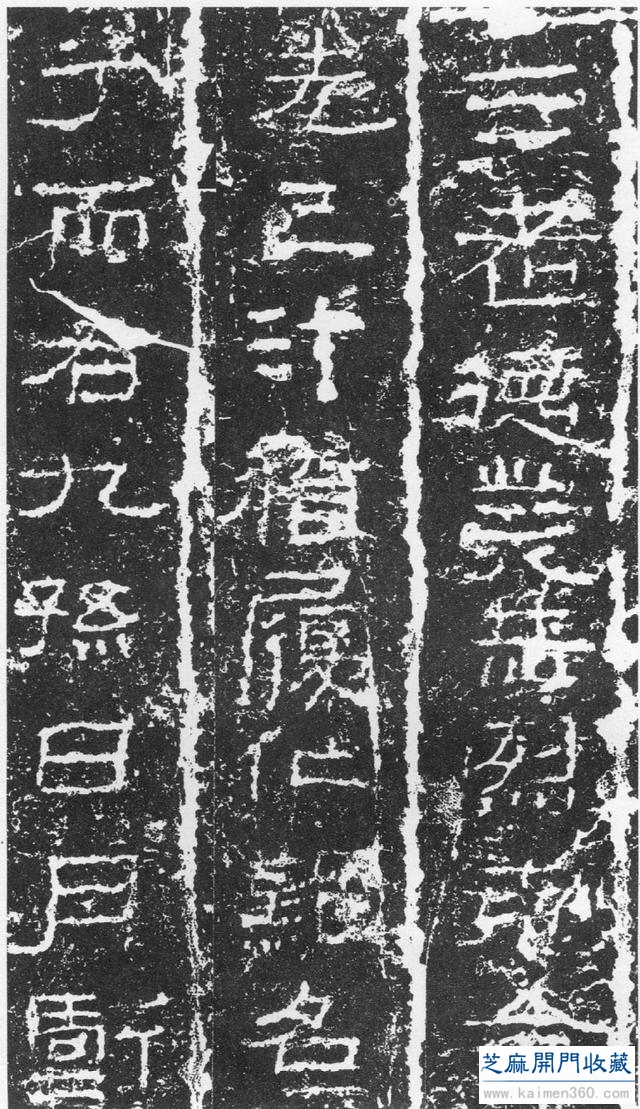 三老德業赫烈克命
先己汁稽履化難名
兮而右九孫日月虧
芝麻開門收藏
www.kaimen360.com